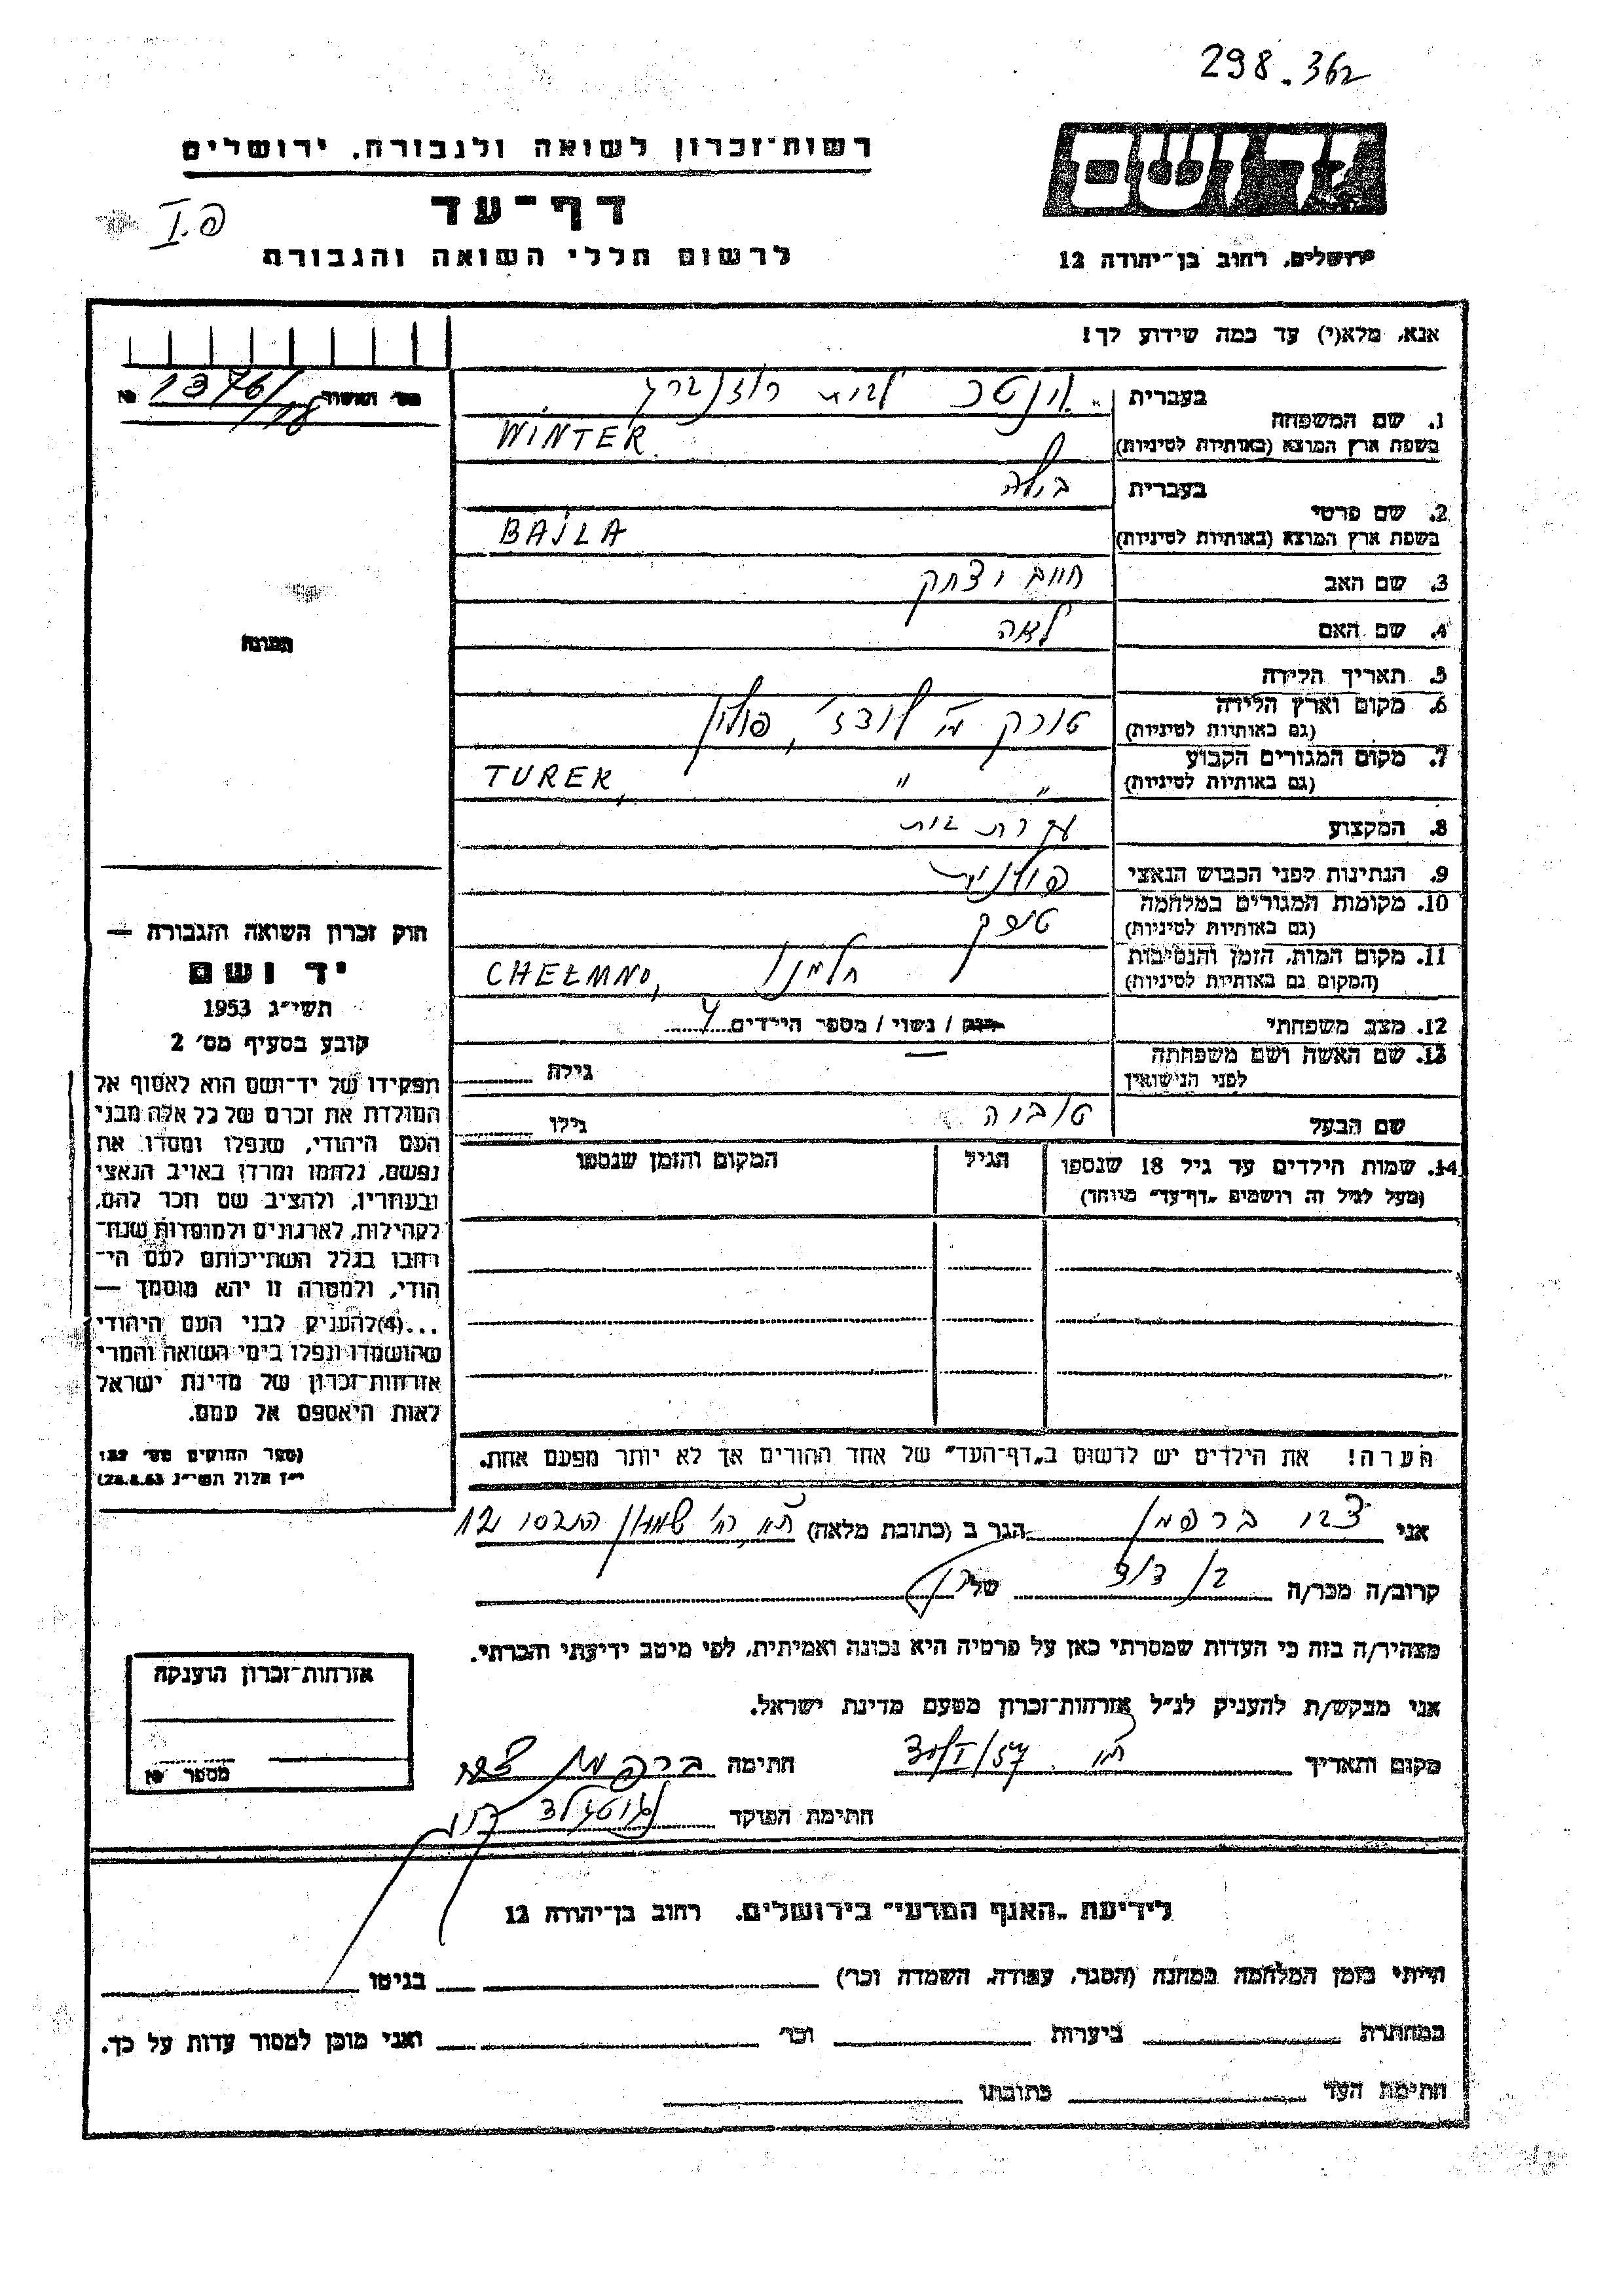 298.362
יד ושם
רשות-זכרון לשואה ולגבורה, ירושלים
דף-עד
לרשום חללי השואה והגבורה
ירושלים, רחוב בן-יהודה 12
אנא, מלא(י) עד כמה שידוע לך!
1. שם המשפחה
בעברית
וינטר לבית רוזנברג
בשפת ארץ המוצא (באותיות לטיניות)
WINTER
2. שם פרטי
בעברית
ביילה
בשפת ארץ המוצא (באותיות לטיניות)
BAJLA
3. שם האב
חיים יצחק
4. שם האם
לאה
5. תאריך הלידה
6. מקום וארץ הלידה
(גם באותיות לטיניות)
טורק מ' לודז', פולין
7. מקום המגורים הקבוע
(גם באותיות לטיניות)
" " TUREK,
8. המקצוע
עקרת בית
9. הנתינות לפני הכבוש הנאצי
פולנית
10. מקומות המגורים במלחמה
(גם באותיות לטיניות)
טורק
11. מקום המות, הזמן והנסיבות
(המקום גם באותיות לטיניות)
חלמנו CHEŁMNO,
12. מצב משפחתי
רווק / נשוי / מספר הילדים 4
13. שם האשה ושם משפחתה
לפני הנישואין
גילה
שם הבעל
טוביה
גילו
14. שמות הילדים עד גיל 18 שנספו
(מעל לגיל זה רושמים "דף-עד" מיוחד)
הגיל
המקום והזמן שנספו
הערה! את הילדים יש לרשום ב"דף-העד" של אחד ההורים אך לא יותר מפעם אחת.
מס' האשור
1376/18 №
תמונה
חוק זכרון השואה והגבורה —
יד ושם
תשי"ג 1953
קובע בסעיף מס' 2
תפקידו של יד-ושם הוא לאסוף אל
המולדת את זכרם של כל אלה מבני
העם היהודי, שנפלו ומסרו את
נפשם, נלחמו ומרדו באויב הנאצי
ובעוזריו, ולהציב שם וזכר להם,
לקהילות, לארגונים ולמוסדות שנח-
רבו בגלל השתייכותם לעם הי-
הודי, ולמטרה זו יהא מוסמך —
...(4) להעניק לבני העם היהודי
שהושמדו ונפלו בימי השואה והמרי
אזרחות-זכרון של מדינת ישראל
לאות היאספם אל עמם.
(ספר החוקים מס' 132
י"ז אלול תשי"ג 28.8.53)
אני צבי ברקמן הגר ב (כתובת מלאה) ת"א, רח' שמעון התרסי 12
קרוב/ה מכר/ה בן דוד של
מצהיר/ה בזה כי העדות שמסרתי כאן על פרטיה היא נכונה ואמיתית, לפי מיטב ידיעתי והכרתי.
אני מבקש/ת להעניק לנ"ל אזרחות-זכרון מטעם מדינת ישראל.
מקום ותאריך ת"א 30/I/57 חתימה ברקמן צבי
חתימת הפוקד
אזרחות-זכרון הוענקה
מספר №
לידיעת "האגף המדעי" בירושלים, רחוב בן-יהודה 12
הייתי בזמן המלחמה במחנה (הסגר, עבודה, השמדה וכו') בגיטו
במחתרת ביערות וכו' ואני מוכן למסור עדות על כך.
חתימת העד כתובתו